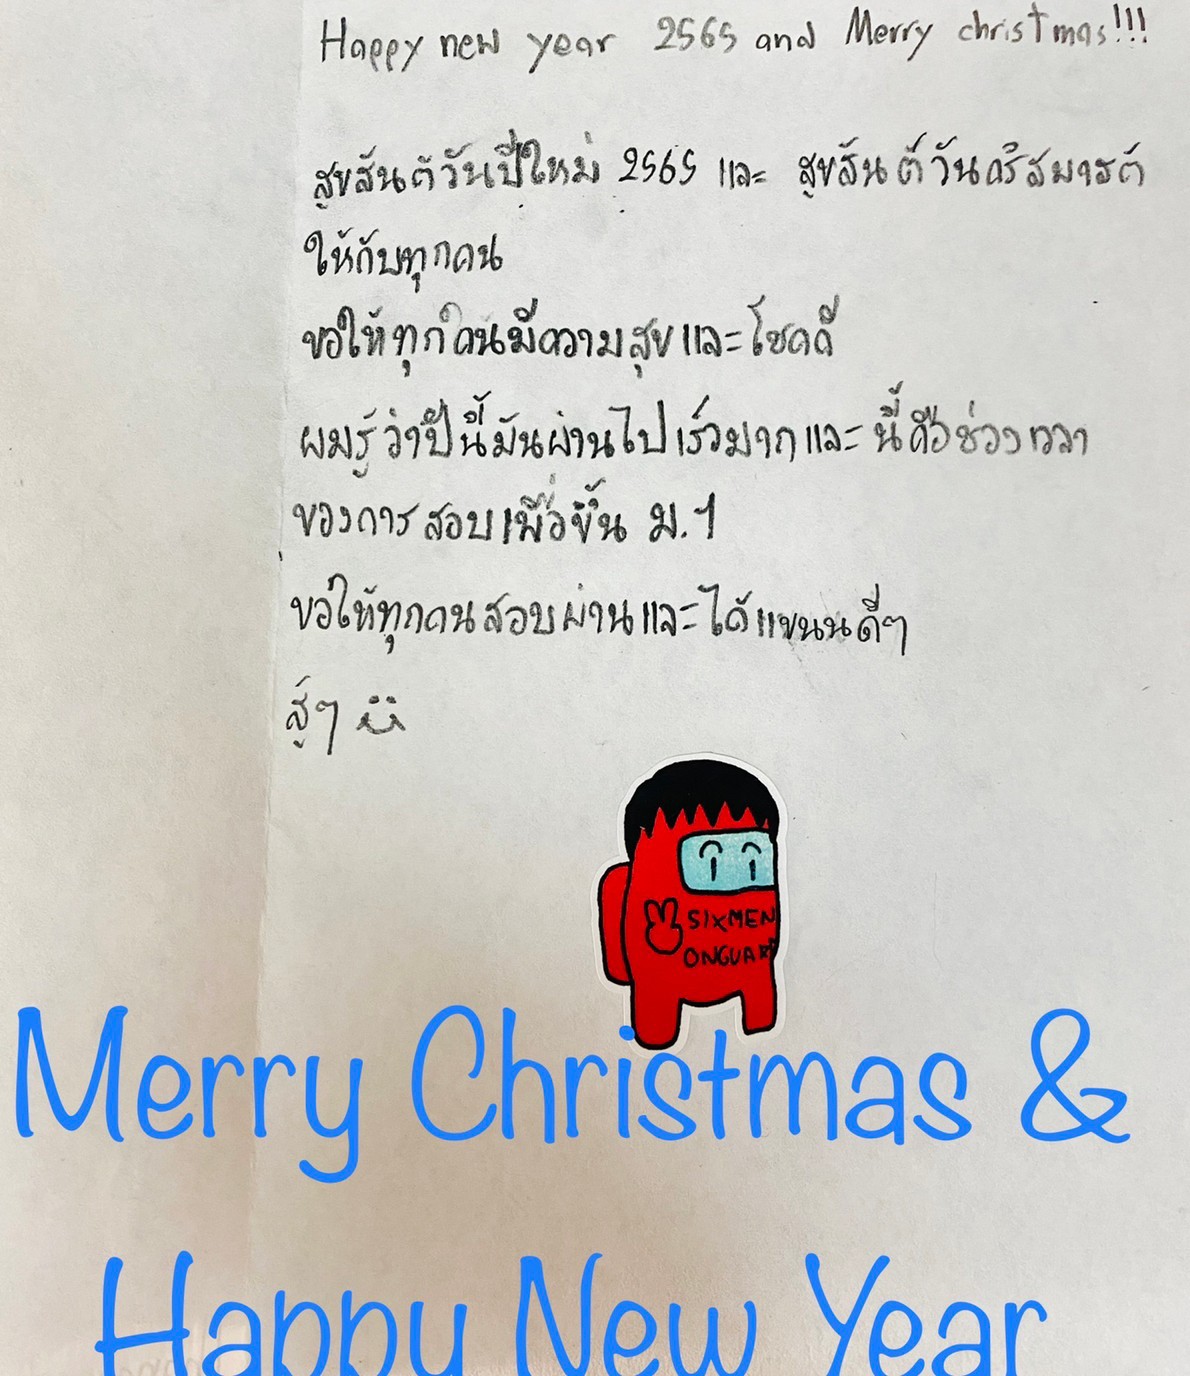 Happy new year 2565 and Merry christmas!!!
สุขสันต์วันปีใหม่ 2565 และ สุขสันต์วันคริสมารต์
ให้กับทุกคน
ขอให้ทุกคนมีความสุขและโชคดี
ผมรู้ว่าปีนี้มันผ่านไปเร็วมากและนี้คือช่วงเวลา
ของการสอบเพื่อขึ้น ม.1
ขอให้ทุกคนสอบผ่านและได้แขนนดีๆ
สู้ๆ
SIXMEN
ONGUARD
Merry Christmas &
Happy New Year